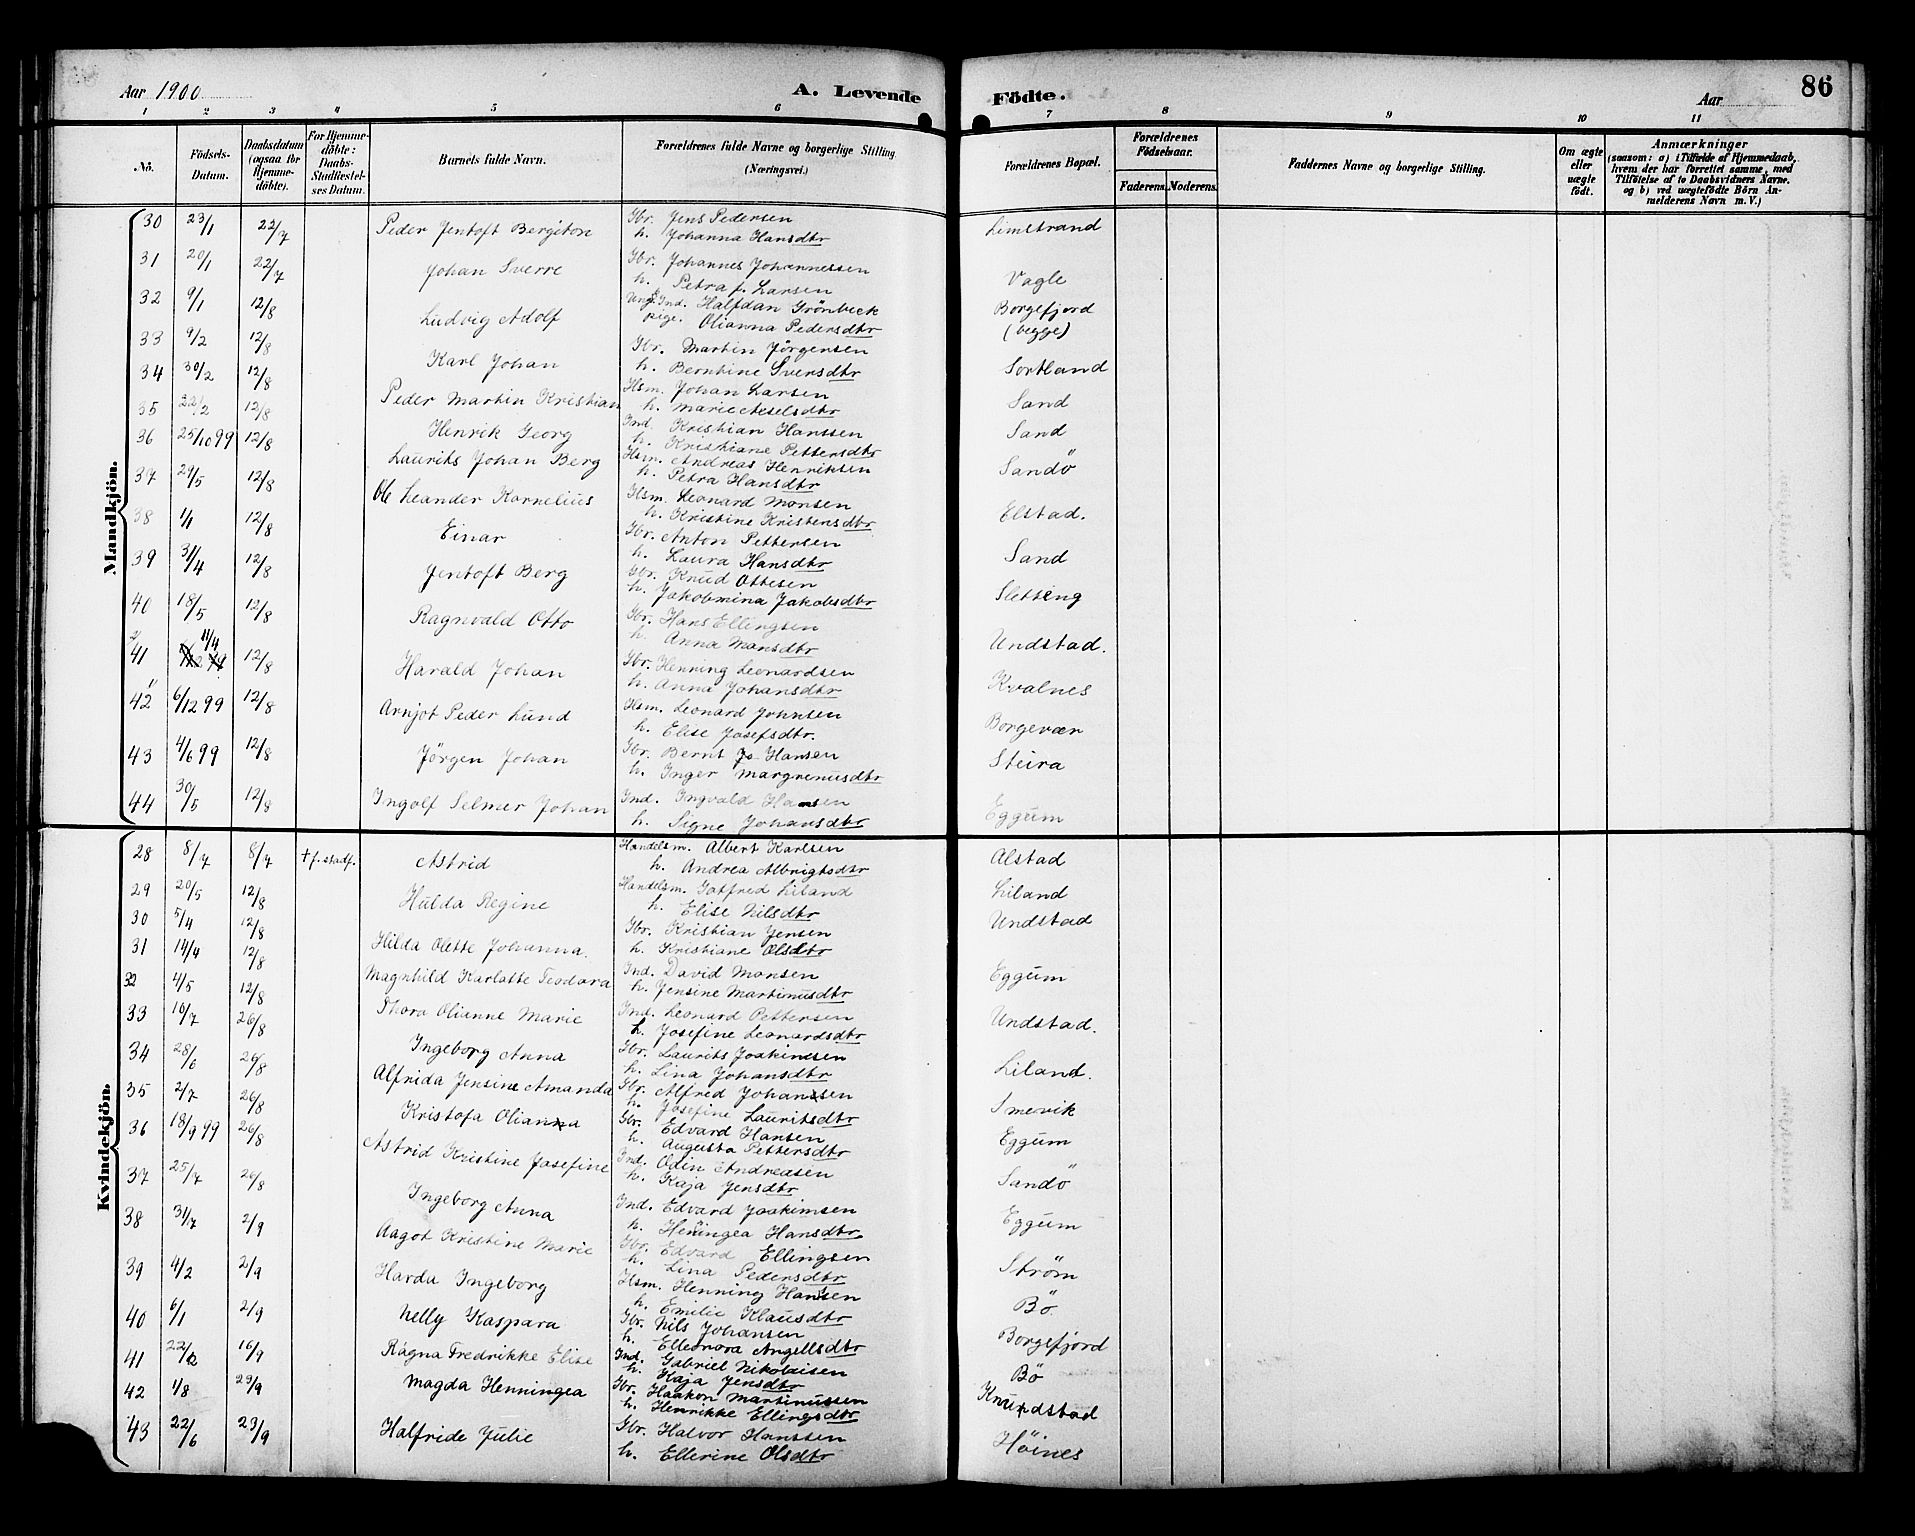 Aar 1900
A. Levende Födte.
Aar
86
1 2 3 4 5 6 7 8 9 10 11
No.
Födsels-Datum.
Daabsdatum (ogsaa for Hjemmedöbte).
For Hjemmedöbte: Daabs-Stadfæstelses Datum.
Barnets fulde Navn.
Forældrenes fulde Navne og borgerlige Stilling (Næringsvei.)
Forældrenes Bopæl.
Forældrenes Födselsaar.
Faderens. Moderens.
Faddernes Navne og borgerlige Stilling.
Om ægte eller uægte födt.
Anmærkninger (saasom: a) i Tilfælde af Hjemmedaab, hvem der har forrettet samme, med Tilföielse af to Daabsvidners Navne. og b) ved uægtefödte Börn Anmelderens Navn m. V.)
Mandkjön.
30 23/1 22/7 Peder Jentoft Bergiton Gbr. Jens Pedersen Limstrand
h. Johanna Hansdtr
31 20/1 22/7 Johan Sverre Gbr. Johannes Johannessen Vagle
h. Petra f. Larsen
32 9/1 12/8 Ludvig Adolf Ungk. Ind. Halfdan Grönbeck Borgefjord
pige. Olianna Pedersdtr (begge)
33 9/2 12/8 Karl Johan Gbr. Martin Jörgensen Sortland
h. Bernhine Sversdtr
34 30/2 12/8 Peder Martin Kristian Hsm. Johan Larsen Sand
h. Marie Akselsdtr
35 22/2 12/8 Henrik Georg Ind. Kristian Hanssen Sand
h. Kristiane Pettersdtr
36 25/10 99 12/8 Laurits Johan Berg Hsm. Andreas Henriksen Sandö
h. Petra Hansdtr
37 29/5 12/8 Ole Leander Kornelius Hsm. Leonard Monsen Elstad.
h. Kristine Kristensdtr
38 1/1 12/8 Einar Gbr. Anton Pettersen Sand
h. Laura Hansdtr
39 31/4 12/8 Jentoft Berg Gbr. Knud Ottesen Sletteng
h. Jakobmina Jakobsdtr
40 18/5 12/8 Ragnvald Otto Gbr. Hans Ellingsen Undstad.
h. Anna Mansdtr
41 11/4 12/8 Harald Johan Gbr. Henning Leonardsen Kvalnes
h. Anna Johansdtr
42 6/12 99 12/8 Arnjot Peder Lund Hsm. Leonard Johnsen Borgevær
h. Elise Josefsdtr.
43 4/6 99 12/8 Jörgen Johan Gbr. Bernt Jo Hansen Steira
h. Inger Margrenusdtr
44 30/5 12/8 Ingolf Selmer Johan Ind. Ingvald Hansen Eggum
h. Signe Johansdtr
Kvindekjön.
28 8/7 8/7 † f. stadf. Astrid Handelsm. Albert Karlsen Alstad
h. Andrea Albrigtsdtr
29 20/5 12/8 Hulda Regine Handelsm. Gotfred Liland Liland
h. Elise Nilsdtr
30 5/4 12/8 Hilda Olette Johanna. Gbr. Kristian Jensen Undstad
h. Kristiane Olsdtr
31 14/4 12/8 Magnhild Karlatte Teodora Ind. David Monsen Eggum
h. Jensine Martinusdtr
32 4/5 12/8 Thora Olianne Marie Ind. Leonard Pettersen Undstad.
h. Josefine Leonardsdtr
33 10/7 26/8 Ingeborg Anna Gbr. Laurits Joakimsen Liland.
h. Lina Johansdtr
34 28/6 26/8 Alfrida Jensine Amanda Gbr. Alfred Johansen Smevik
h. Josefine Lauritsdtr
35 2/7 26/8 Kristofa Olianna Gbr. Edvard Hansen Eggum
h. Augusta Pettersdtr
36 18/9 99 26/8 Astrid Kristine Josefine Ind. Odin Andreasen Sandö
h. Kaja Jensdtr
37 25/7 26/8 Ingeborg Anna Ind. Edvard Joakimsen Eggum
h. Henningea Hansdtr
38 31/7 2/9 Aagot Kristine Marie Gbr. Edvard Ellingsen Ström
h. Lina Pedersdtr
39 4/2 2/9 Harda Ingeborg Hsm. Henning Hansen Bö
h. Emilie Klausdtr
40 6/1 2/9 Nelly Kaspara Gbr. Nils Johansen Borgefjord
h. Elleonora Angellsdtr
41 22/2 16/9 Ragna Fredrikke Elise Ind. Gabriel Nikolaisen Bö
h. Kaja Jensdtr
42 1/8 29/9 Magda Henningea Gbr. Haakon Martinussen Knurdstad
h. Henrikke Ellingsdtr
43 22/6 23/9 Halfride Julie Gbr. Halvor Hanssen Höines
h. Ellerine Olsdtr